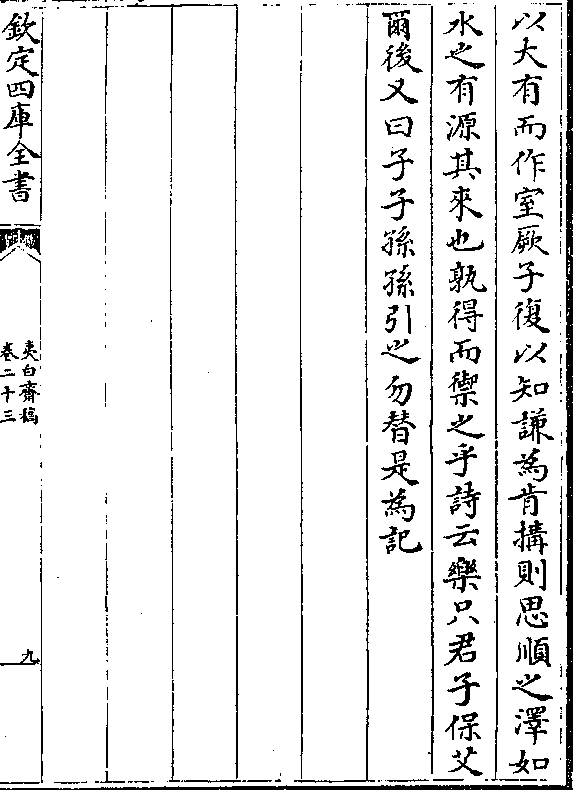 以大有而作室厥子復以知謙為肯搆則思順之澤如
水之有源其來也孰得而禦之乎詩云樂只君子保艾
爾後又曰子子孫孫引之勿替是為記
欽定四庫全書
夷白齋稿
卷二十三
九